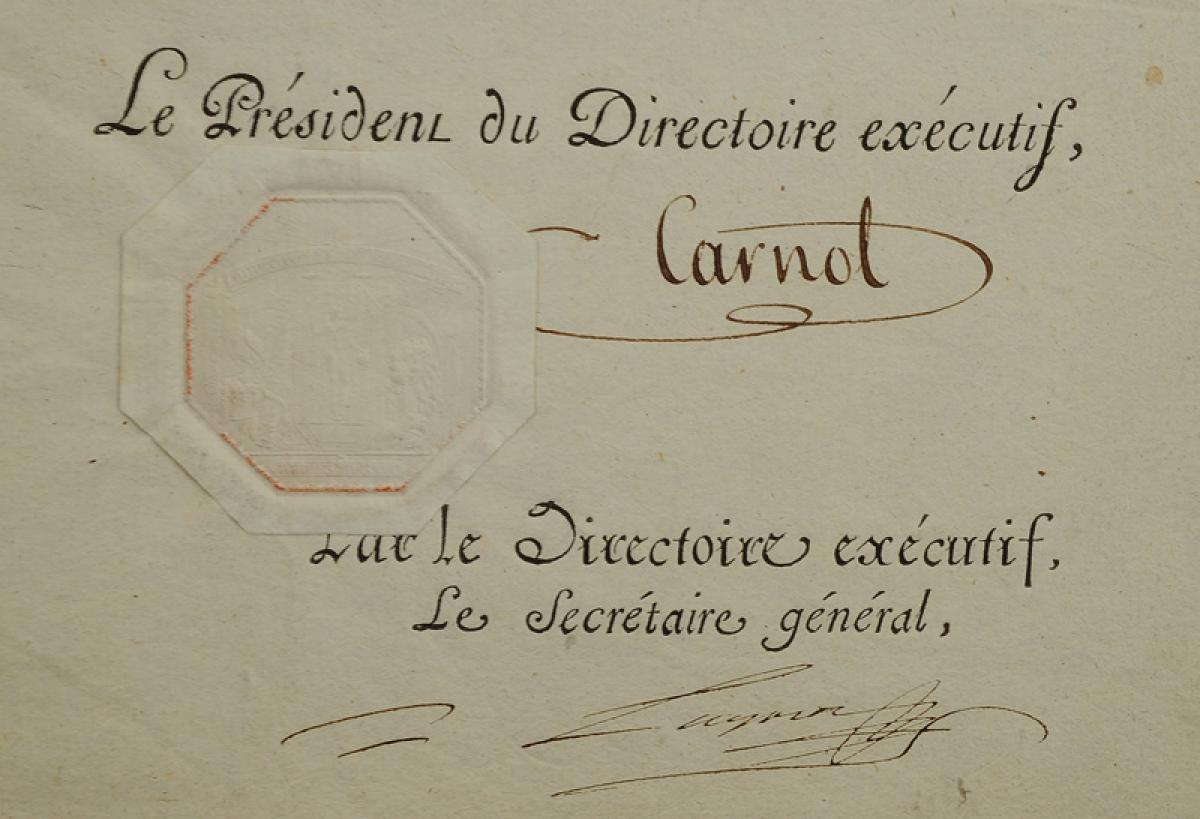 Le Président du Directoire exécutif,
Carnot
Par le Directoire exécutif,
Le Secrétaire général,